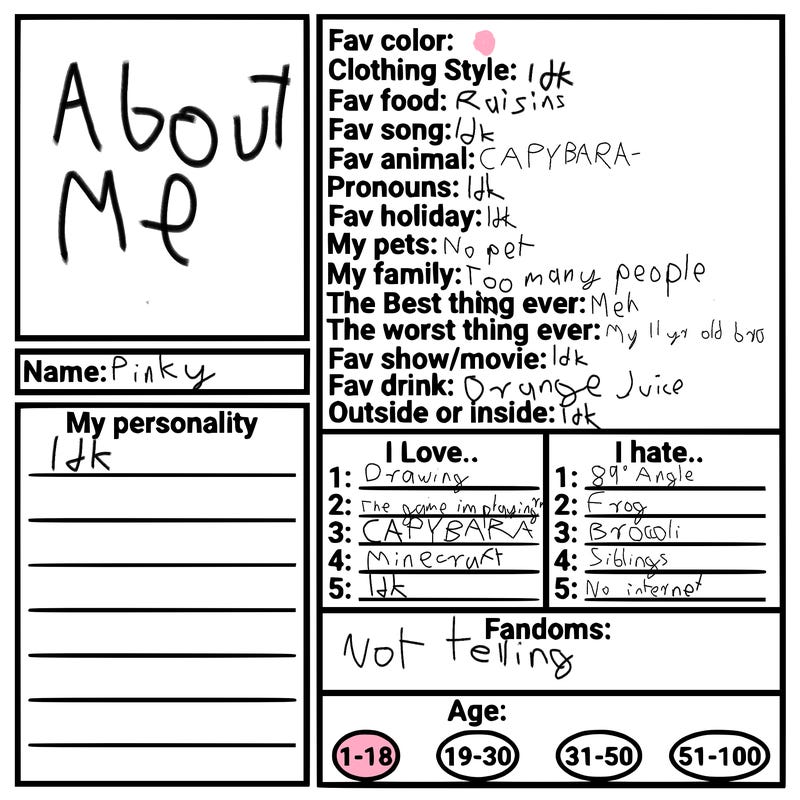 About
Me
Name: Pinky
My personality
Idk
Fav color:
Clothing Style: Idk
Fav food: Raisins
Fav song: Idk
Fav animal: CAPYBARA-
Pronouns: Idk
Fav holiday: Idk
My pets: No pet
My family: Too many people
The Best thing ever: Meh
The worst thing ever: My 11 yr old bro
Fav show/movie: Idk
Fav drink: Orange Juice
Outside or inside: Idk
I Love..
1: Drawing
2: The game im playing rn
3: CAPYBARA
4: Minecraft
5: Idk
I hate..
1: 89° Angle
2: Frog
3: Broccoli
4: Siblings
5: No internet
Fandoms:
Not telling
Age:
1-18 19-30 31-50 51-100